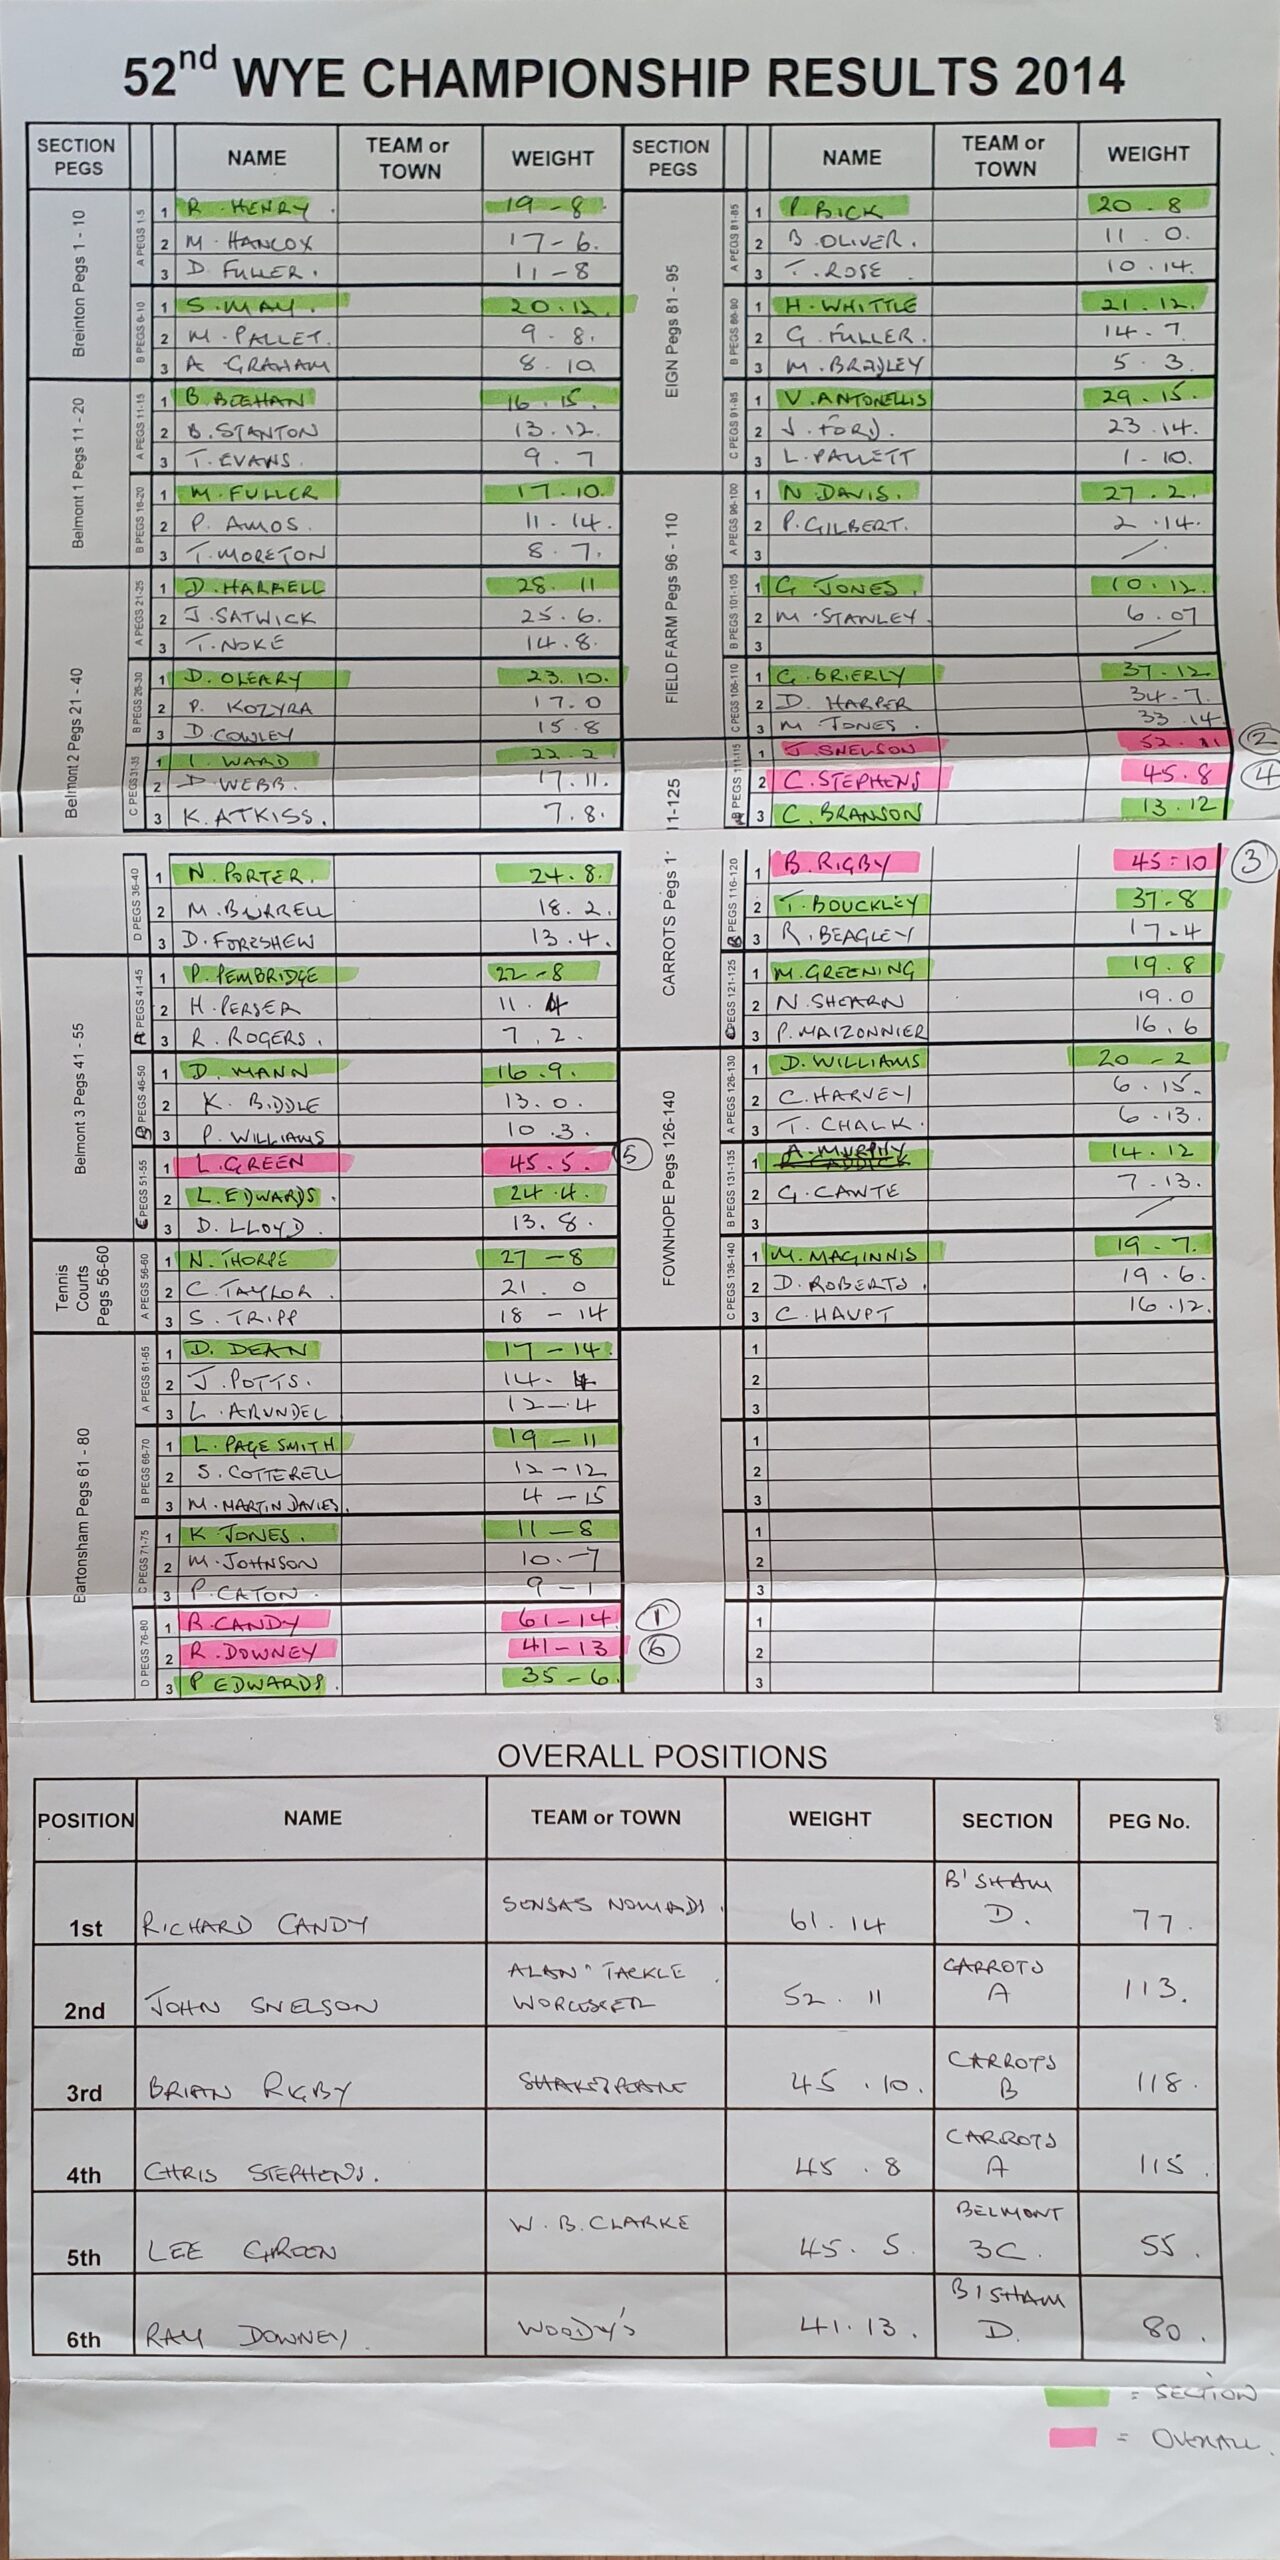 52nd WYE CHAMPIONSHIP RESULTS 2014
SECTION PEGS NAME TEAM or TOWN WEIGHT
Breinton Pegs 1 - 10
A PEGS 1-5
1 R. HENRY. 19-8
2 M. HANCOX 17-6.
3 D. FULLER. 11-8
B PEGS 6-10
1 S. MAY. 20.12.
2 M. PALLET. 9.8.
3 A GRAHAM 8.10
Belmont 1 Pegs 11 - 20
A PEGS 11-15
1 B. BEEHAN 16.15.
2 B. STANTON 13.12.
3 T. EVANS. 9.7
B PEGS 16-20
1 M. FULLER 17.10.
2 P. AMOS. 11.14.
3 T. MORETON 8.7.
Belmont 2 Pegs 21 - 40
A PEGS 21-25
1 D. HARRELL 28.11
2 J. SATWICK 25.6.
3 T. NOKE 14.8.
B PEGS 26-30
1 D. OLEARY 23.10.
2 P. KOZYRA 17.0
3 D. COWLEY 15.8
C PEGS 31-35
1 I. WARD 22.2
2 D. WEBB. 17.11.
3 K. ATKISS. 7.8.
D PEGS 36-40
1 N. PORTER. 24.8.
2 M. BURRELL 18.2.
3 D. FORESHEW 13.4.
Belmont 3 Pegs 41 - 55
A PEGS 41-45
1 P. PEMBRIDGE 22-8
2 H. PERSER 11.4
3 R. ROGERS. 7.2.
B PEGS 46-50
1 D. MANN 16.9.
2 K. BIDDLE 13.0.
3 P. WILLIAMS 10.3.
C PEGS 51-55
1 L. GREEN 45.5. 5
2 L. EDWARDS. 24.4.
3 D. LLOYD. 13.8.
Tennis Courts Pegs 56-60
A PEGS 56-60
1 N. THORPE 27-8
2 C. TAYLOR. 21.0
3 S. TRIPP 18-14
Bartonsham Pegs 61 - 80
A PEGS 61-65
1 D. DEAN 17-14.
2 J. POTTS. 14.4
3 L. ARUNDEL 12-4
B PEGS 66-70
1 L. PAGE SMITH 19-11
2 S. COTTERELL 12-12
3 M. MARTIN DAVIES. 4-15
C PEGS 71-75
1 K JONES. 11-8
2 M. JOHNSON 10.-7
3 P. CATON. 9-1
D PEGS 76-80
1 R. CANDY 61-14 1
2 R. DOWNEY 41-13 6
3 P EDWARDS. 35-6.
SECTION PEGS NAME TEAM or TOWN WEIGHT
EIGN Pegs 81 - 95
A PEGS 81-85
1 P. BICK 20.8
2 B. OLIVER. 11.0.
3 T. ROSE 10.14.
B PEGS 86-90
1 H. WHITTLE 21.12.
2 G. FULLER. 14.7
3 M. BRADLEY 5.3.
C PEGS 91-95
1 V. ANTONELLIS 29.15.
2 J. FORD. 23.14.
3 L. PALLETT 1.10.
FIELD FARM Pegs 96 - 110
A PEGS 96-100
1 N. DAVIS. 27.2.
2 P. GILBERT. 2.14.
3 /
B PEGS 101-105
1 G JONES. 10.12.
2 M. STANLEY. 6.07
3 /
C PEGS 106-110
1 G. BRIERLY 37.12
2 D. HARPER 34-7.
3 M JONES. 33.14
CARROTS Pegs 111-125
A PEGS 111-115
1 J. SNELSON 52.11 2
2 C. STEPHENS 45.8 4
3 C. BRANSON 13.12
B PEGS 116-120
1 B. RIGBY 45-10 3
2 T. BOUCKLEY 37-8
3 R. BEAGLEY 17-4
C PEGS 121-125
1 M. GREENING 19.8
2 N. SHEARN 19.0
3 P. MAIZONNIER 16.6
FOWNHOPE Pegs 126-140
A PEGS 126-130
1 D. WILLIAMS 20-2
2 C. HARVEY 6.15.
3 T. CHALK. 6.13.
B PEGS 131-135
1 A. MURPHY 14.12
2 G. CANTE 7.13.
3 /
C PEGS 136-140
1 M. MAGINNIS 19-7.
2 D. ROBERTS. 19.6.
3 C. HAUPT 16.12.
1
2
3
1
2
3
1
2
3
1
2
3
OVERALL POSITIONS
POSITION NAME TEAM or TOWN WEIGHT SECTION PEG No.
1st RICHARD CANDY SENSAS NOMADS. 61.14 B'SHAM D. 77.
2nd JOHN SNELSON ALANS TACKLE WORCESTER 52.11 CARROTS A 113.
3rd BRIAN RIGBY SHAKESPEARE 45.10. CARROTS B 118.
4th CHRIS STEPHENS. 45.8 CARROTS A 115.
5th LEE GREEN W.B. CLARKE 45.5. BELMONT 3C. 55.
6th RAY DOWNEY. WOODY'S 41.13. B'SHAM D. 80.
= SECTION
= OVERALL.